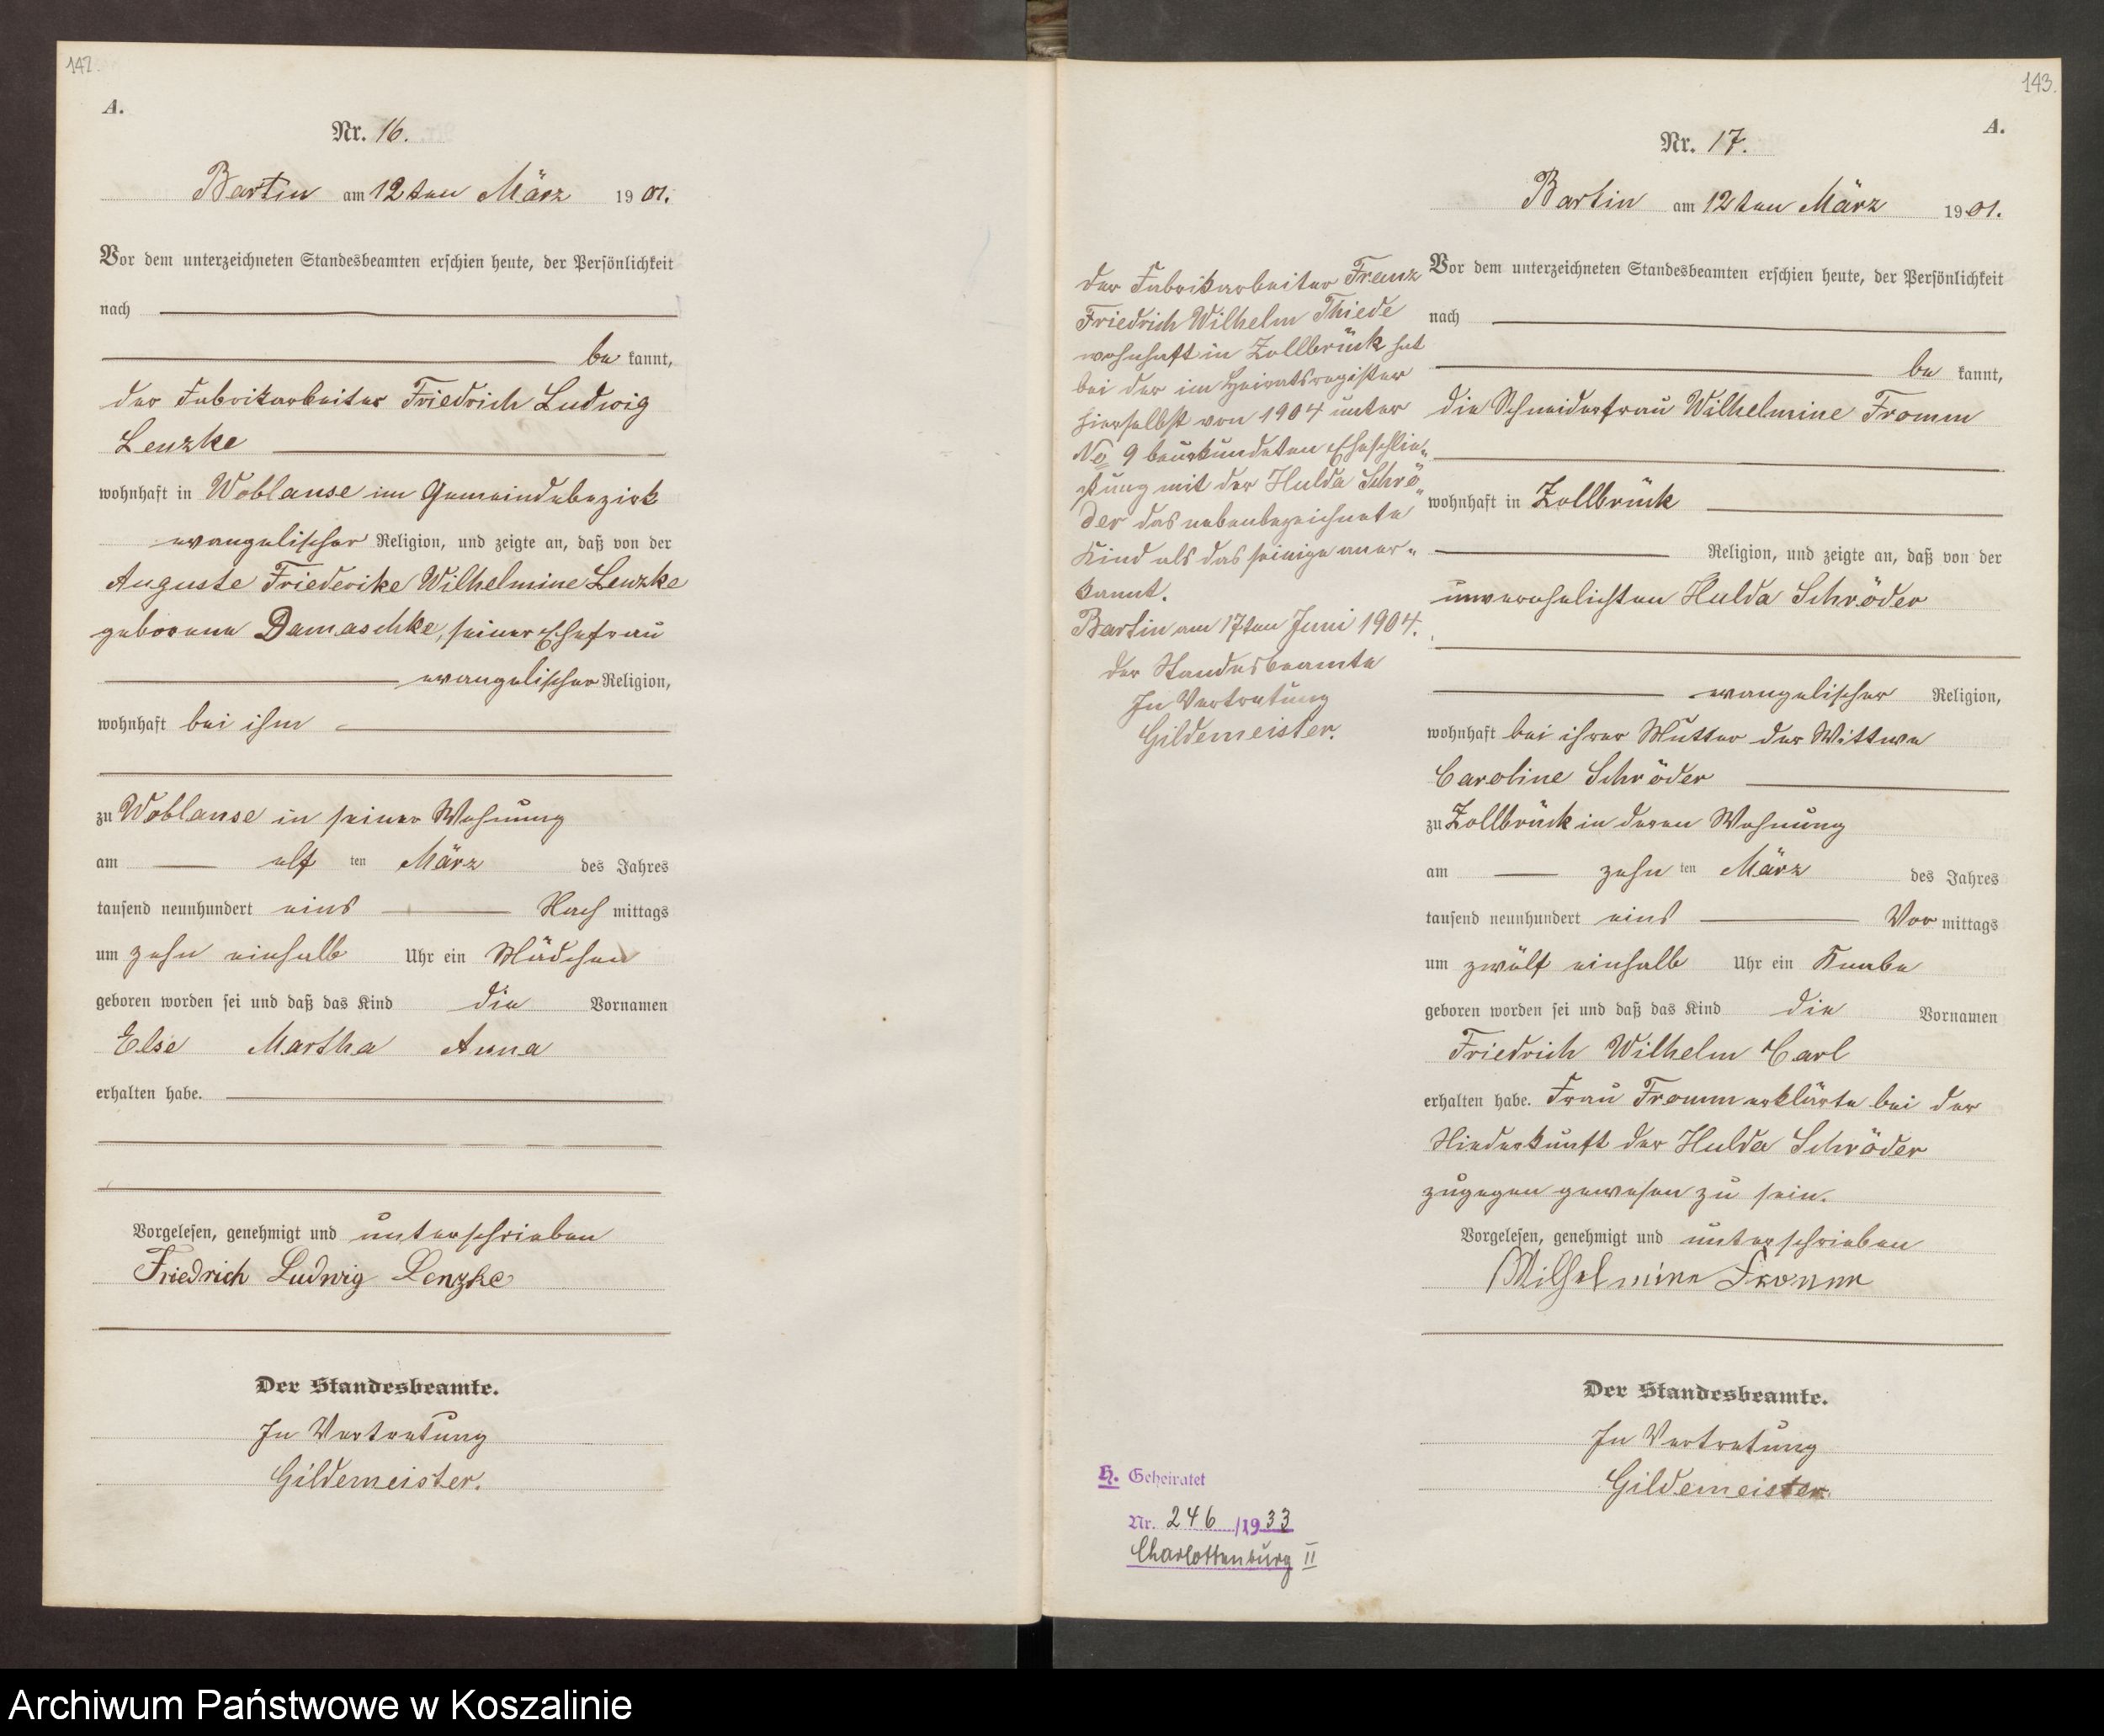 142.
A.
Nr. 16.
Bartin am 12ten März 1901.
Vor dem unterzeichneten Standesbeamten erschien heute, der Persönlichkeit
nach
be kannt,
der Fabrikarbeiter Friedrich Ludwig
Lenzke
wohnhaft in Woblanse im Gemeindebezirk
evangelischer Religion, und zeigte an, daß von der
Auguste Friederike Wilhelmine Lenzke
geborene Damaschke, seiner Ehefrau
evangelischer Religion,
wohnhaft bei ihm
zu Woblanse in seiner Wohnung
am elf ten März des Jahres
tausend neunhundert eins Nach mittags
um zehn einhalb Uhr ein Mädchen
geboren worden sei und daß das Kind die Vornamen
Else Martha Anna
erhalten habe.
Vorgelesen, genehmigt und unterschrieben
Friedrich Ludwig Lenzke
Der Standesbeamte.
In Vertretung
Gildemeister.
143.
A.
Nr. 17.
Bartin am 12ten März 1901.
Vor dem unterzeichneten Standesbeamten erschien heute, der Persönlichkeit
nach
be kannt,
die Schneiderfrau Wilhelmine Fromm
wohnhaft in Zollbrück
Religion, und zeigte an, daß von der
unverehelichten Hulda Schröder
evangelischer Religion,
wohnhaft bei ihrer Mutter der Wittwe
Caroline Schröder
zu Zollbrück in deren Wohnung
am zehn ten März des Jahres
tausend neunhundert eins Vor mittags
um zwölf einhalb Uhr ein Knabe
geboren worden sei und daß das Kind die Vornamen
Friedrich Wilhelm Carl
erhalten habe. Frau Fromm erklärte bei der
Niederkunft der Hulda Schröder
zugegen gewesen zu sein.
Vorgelesen, genehmigt und unterschrieben
Wilhelmine Fromm
Der Standesbeamte.
In Vertretung
Gildemeister.
Der Fabrikarbeiter Franz
Friedrich Wilhelm Thiede
wohnhaft in Zollbrück hat
bei der im Heiratsregister
hierselbst von 1904 unter
No 9 beurkundeten Eheschlie-
ßung mit der Hulda Schrö-
der das nebenbezeichnete
Kind als das seinige aner-
kannt.
Bartin am 17ten Juni 1904.
Der Standesbeamte
In Vertretung
Gildemeister.
H. Geheiratet
Nr. 246/1933
Charlottenburg II
Archiwum Państwowe w Koszalinie